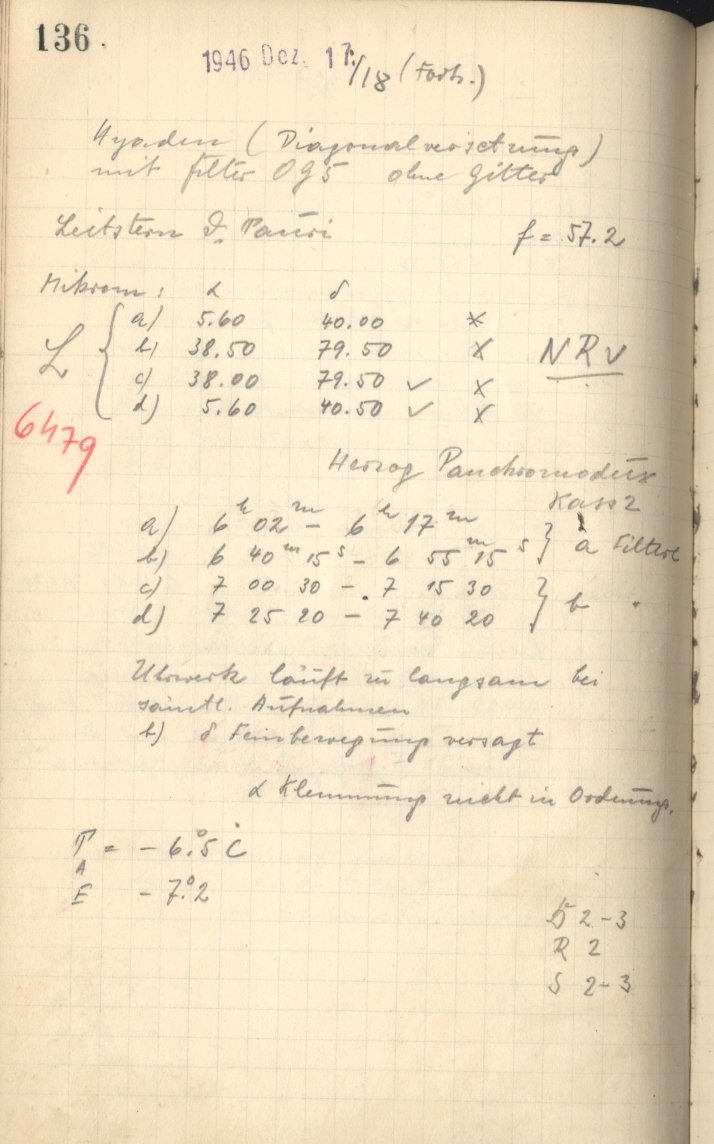 136.
1946 Dez. 17./18 (Forts.)
Hyaden (Diagonalversetzung)
mit filter OG5 ohne Gitter
Leitstern ϑ Tauri f = 57.2
Mikrom: α δ
a) 5.60 40.00 X
b) 38.50 79.50 X NRV
L
c) 38.00 79.50 ✓ X
d) 5.60 40.50 ✓ X
6479
Herzog
Kass 2
a) 6h 02m – 6h 17m
b) 6 40m 15s – 6 55m 15s } a Filter
c) 7 00 30 – 7 15 30
d) 7 25 20 – 7 40 20 } b "
Uhrwerk läuft zu langsam bei
sämtl. Aufnahmen
b) δ Feinbewegung versagt
α Klemmung nicht in Ordnung.
T = – 6.°5 C
A
E – 7.°2
2-3
R 2
S 2-3